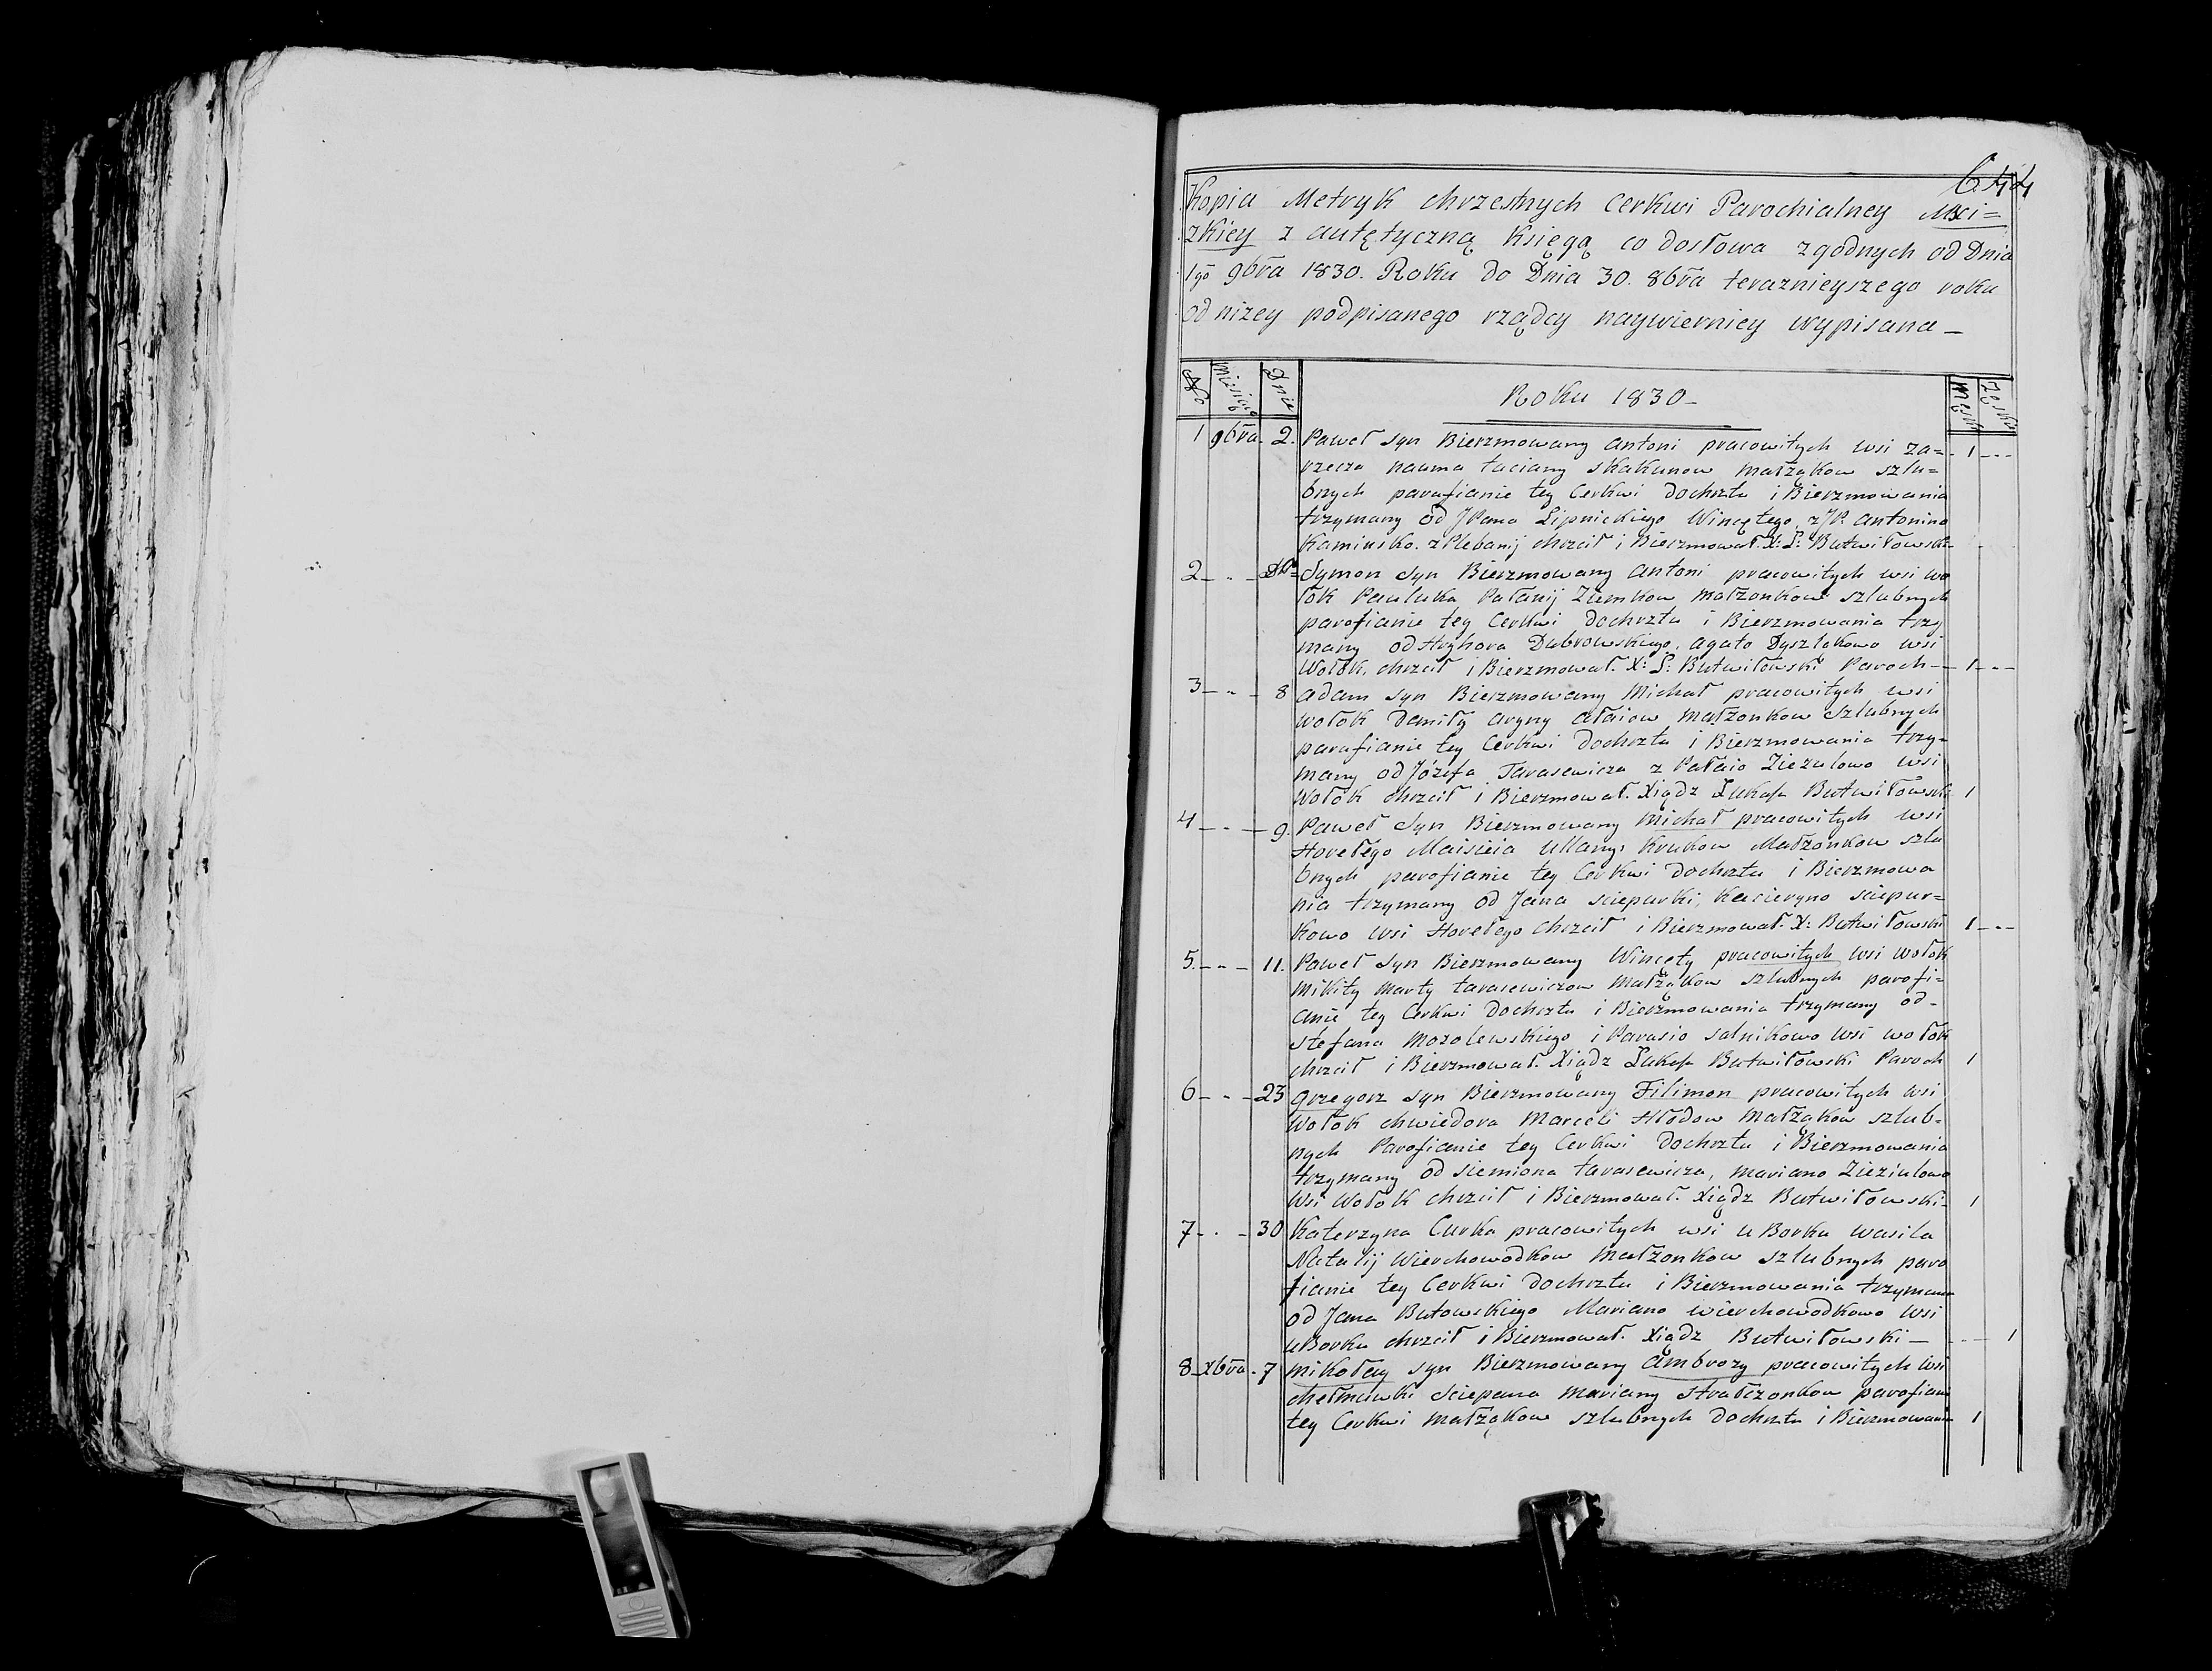 644
Kopia Metryk chrzestnych Cerkwi Parochialney Mści=
zkiey z autętyczną Księgą co do słowa zgodnych od Dnia
1go 9bra 1830. Roku do Dnia 30. 8bra teraznieyszego roku
od niżey podpisanego rządcy naywierniey wypisana –
No Miesiąc Dnie Roku 1830 – Męsk Żęsk
1 9bra. 2. Paweł syn Bierzmowany Antoni pracowitych wsi Za= 1 – – –
rzecza Nauma Taciany Skakunow małżąkow szlu=
bnych parafianie tey Cerkwi Dochrztu i Bierzmowania
trzymany od JPana Lipnickiego Wincętego, z JP. Antonino
Kaminsko. z Plebanij chrzcił i Bierzmował. X: Ł: Butwiłowski
2 – " – Do Symon syn Bierzmowany Antoni pracowitych wsi Wo
łok Pauluka Połanij Ziemkow małżonkow szlubnych
parofianie tey Cerkwi Dochrztu i Bierzmowania trzy
many od Hryhora Dubrowskiego, Agato Dyszlokowo wsi
Wołok. chrzcił i Bierzmował. X: Ł: Butwiłowski Paroch – 1 – – –
3 – " – 8 Adam syn Bierzmowany Michał pracowitych wsi
Wołok Daniły Aryny Ałaiow małżonkow szlubnych
parafianie tey Cerkwi Dochrztu i Bierzmowania trzy=
many od Józefa Tarasewicza z Pałaio Zięzulowo wsi
Wołok chrzcił i Bierzmował. Xiądz Łukasz Butwiłowski 1
4 – " – 9. Paweł syn Bierzmowany Michał pracowitych wsi
Horełego Maisieia Ullany Krukow Małżonkow szlu
bnych parofianie tey Cerkwi Dochrztu i Bierzmowa
nia trzymany od Jana Scieparki, Kacieryno Sciepur=
kowo wsi Horełego chrzcił i Bierzmował. X: Butwiłowski 1 – – –
5. – " – 11. Paweł syn Bierzmowany Wincęty pracowitych wsi Wołok
Mikity Marty Tarasewiczow Małżąkow szlubnych parofi=
anie tey Cerkwi Dochrztu i Bierzmowania trzymany od –
Stefana Mozolewskiego i Parasio Salnikowo wsi Wołok
chrzcił i Bierzmował. Xiądz Łukasz Butwiłowski Paroch 1
6 – " – 23 Grzegorz syn Bierzmowany Filimon pracowitych wsi
Wołok Chwiedora Marceli Hłodow Małżąkow szlub=
nych Parofianie tey Cerkwi Dochrztu i Bierzmowania
trzymany od Siemiona Tarasewicza, Mariano Zieziulowo
wsi Wołok chrzcił i Bierzmował. Xiądz Butwiłowski – 1
7 – " – 30 Katerzyna Curka pracowitych wsi u Borku Wasila
Natalij Wierchowodkow Małżonkow szlubnych paro
fianie tey Cerkwi Dochrztu i Bierzmowania trzymana
od Jana Butowskiego Mariano Wierchowodkowo wsi
u Borku chrzcił i Bierzmował. Xiądz Butwiłowski – – – – 1
8 – Xbra . 7 Mikołay syn Bierzmowany Ambrozy pracowitych wsi
Sciepana Mariany parofian
tey Cerkwi Małżąkow szlubnych Dochrztu i Bierzmowania 1